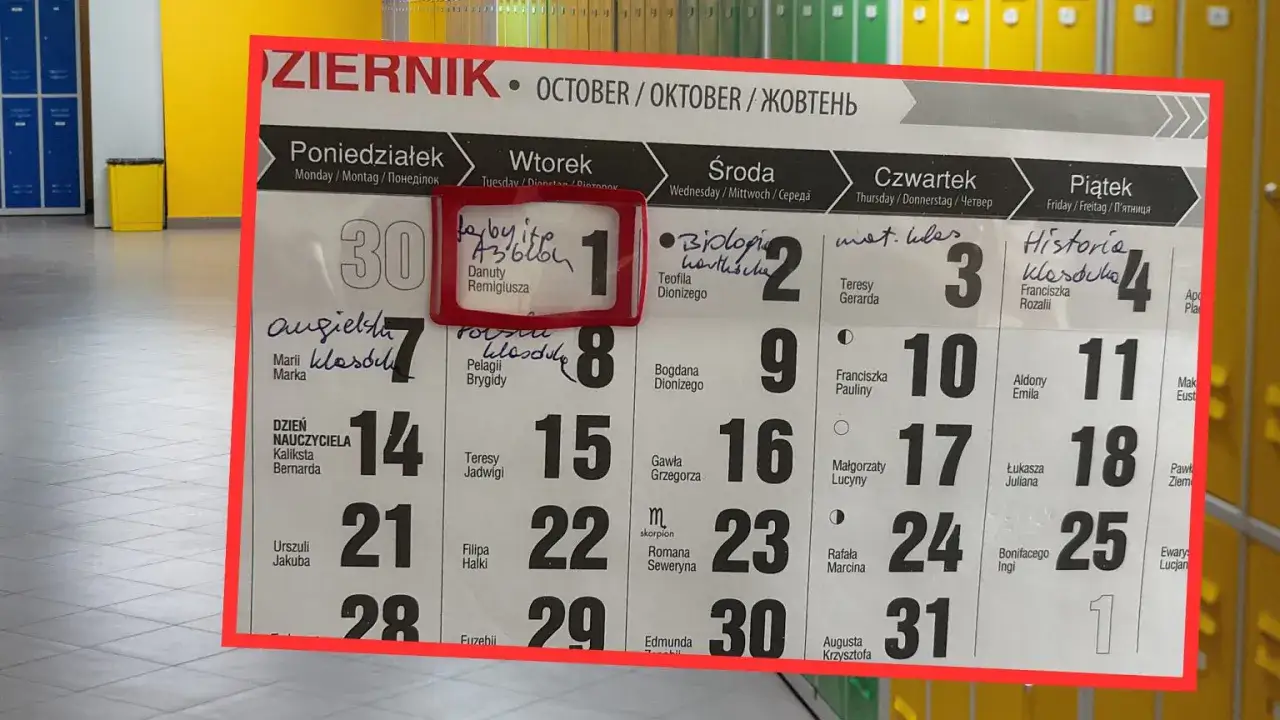 DZIERNIK • OCTOBER / OKTOBER / ЖОВТЕНЬ
Poniedziałek Wtorek Środa Czwartek Piątek
Monday / Montag / Понеділок Tuesday / Dienstag / Вівторок Wednesday / Mittwoch / Середа Thursday / Donnerstag / Четвер Friday / Freitag / П'ятниця
30
1
Danuty
Remigiusza
Biologia
kartkówka
2
Teofila
Dionizego
mat. klas
3
Teresy
Gerarda
Historia
klasówka
4
Franciszka
Rozalii
angielski
klasówka
7
Marii
Marka
Polski
klasówka
8
Pelagii
Brygidy
9
Bogdana
Dionizego
10
Franciszka
Pauliny
11
Aldony
Emila
DZIEŃ
NAUCZYCIELA
14
Kaliksta
Bernarda
15
Teresy
Jadwigi
16
Gawła
Grzegorza
17
Małgorzaty
Lucyny
18
Łukasza
Juliana
21
Urszuli
Jakuba
22
Filipa
Halki
skorpion
23
Romana
Seweryna
24
Rafała
Marcina
25
Bonifacego
Ingi
28
29
Euzebii
30
Edmunda
31
Augusta
Krzysztofa
1